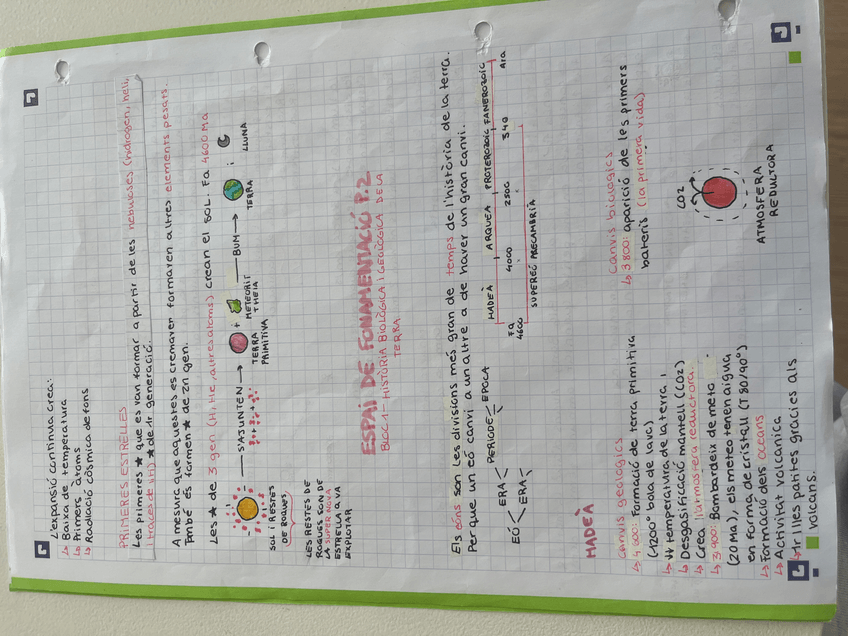 L'expansió continua crea:
↳ Baixa de temperatura
↳ Primers àtoms
↳ Radiació còsmica de fons
PRIMERES ESTRELLES
Les primeres ★ que es van formar a partir de les nebuloses (hidrogen, heli,
i traces de liti) ★ de 1r generació.
A mesura que aquestes es cremaver formaven altres elements pesats.
També es formen ★ de 2n gen.
Les ★ de 3 gen (H, He, altres atoms) crean el SOL. Fa 4600 Ma
SOL I RESTES DE ROQUES
S'AJUNTEN →
TERRA PRIMITIVA
+
METEORIT THEIA
BUM →
TERRA
i
LLUNA
LES RESTES DE
ROQUES SON DE
LA SUPER NOVA
ESTRELLA Q VA
EXPLOTAR
ESPAI DE FONAMENTACIÓ P.2
BLOC 1 - HISTÒRIA BIOLÒGICA I GEOLÒGICA DE LA
TERRA
Els eons son les divisions més gran de temps de l'història de la terra.
Per que un eó canvi a un altre a de haver un gran canvi.
EÓ < ERA < PERIODE < EPOCA
ERA <
HADEÀ ARQUEÀ PROTEROZOIC FANEROZOIC
Fa 4600 4000 2500 540 Ara
SUPEREÓ PRECAMBRIÀ
HADEÀ
Canvis geologics
↳ 4 600: Formació de terra primitiva
(1200° bola de lava)
↳ ↓↓ temperatura de la terra,
↳ Desgasificació mantell (CO2)
↳ Crea l'atmosfera reductora.
↳ 3 900: Bombardeix de meto.
(20 Ma), els meteo tenen aigua
en forma de cristall (T 80/90°)
↳ Formació dels oceans
↳ Activitat volcanica
↳ Hi illes patites gracies als
volcans.
Canvis biologics
↳ 3 800: aparició de les primers
bateris (la primera vida)
CO2
ATMOSFERA
REDUCTORA